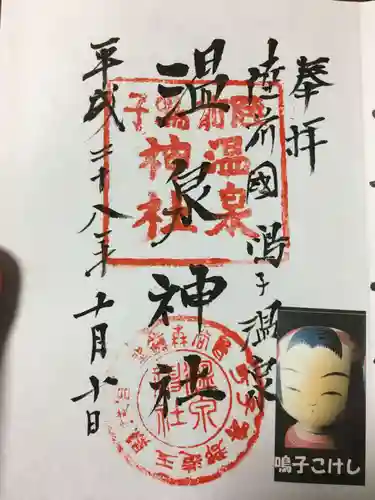 奉拝
陸前國 鳴子温泉
温泉神社
平成二十八年 十月十日
陸前
鳴子
温泉
神社
鳴子こけし